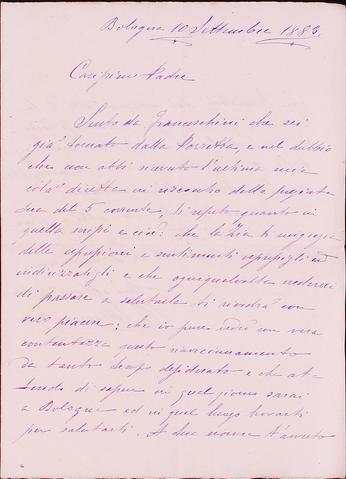 Bologna 10 Settembre 1883.
Carissimo Padre
Sento da Franceschini che sei
già tornato dalla Porretta, e nel dubbio
che non abbi ricevuto l'ultima mia
colà diretta in riscontro della pregiata
tua del 5 corrente, ti ripeto quanto in
quella scrissi e cioè: che la Zia ti ringrazia
delle espressioni e sentimenti
indirizzatigli e che ogniqualvolta crederai
di passare a salutarla ti rivedrà con
vero piacere; che io pure vedrò con vera
contentezza questo riavvicinamento
da tanto tempo desiderato e che at-
tendo di sapere in qual giorno sarai
a Bologna ed in qual luogo trovarti
per salutarti. A tua norma t'avverto